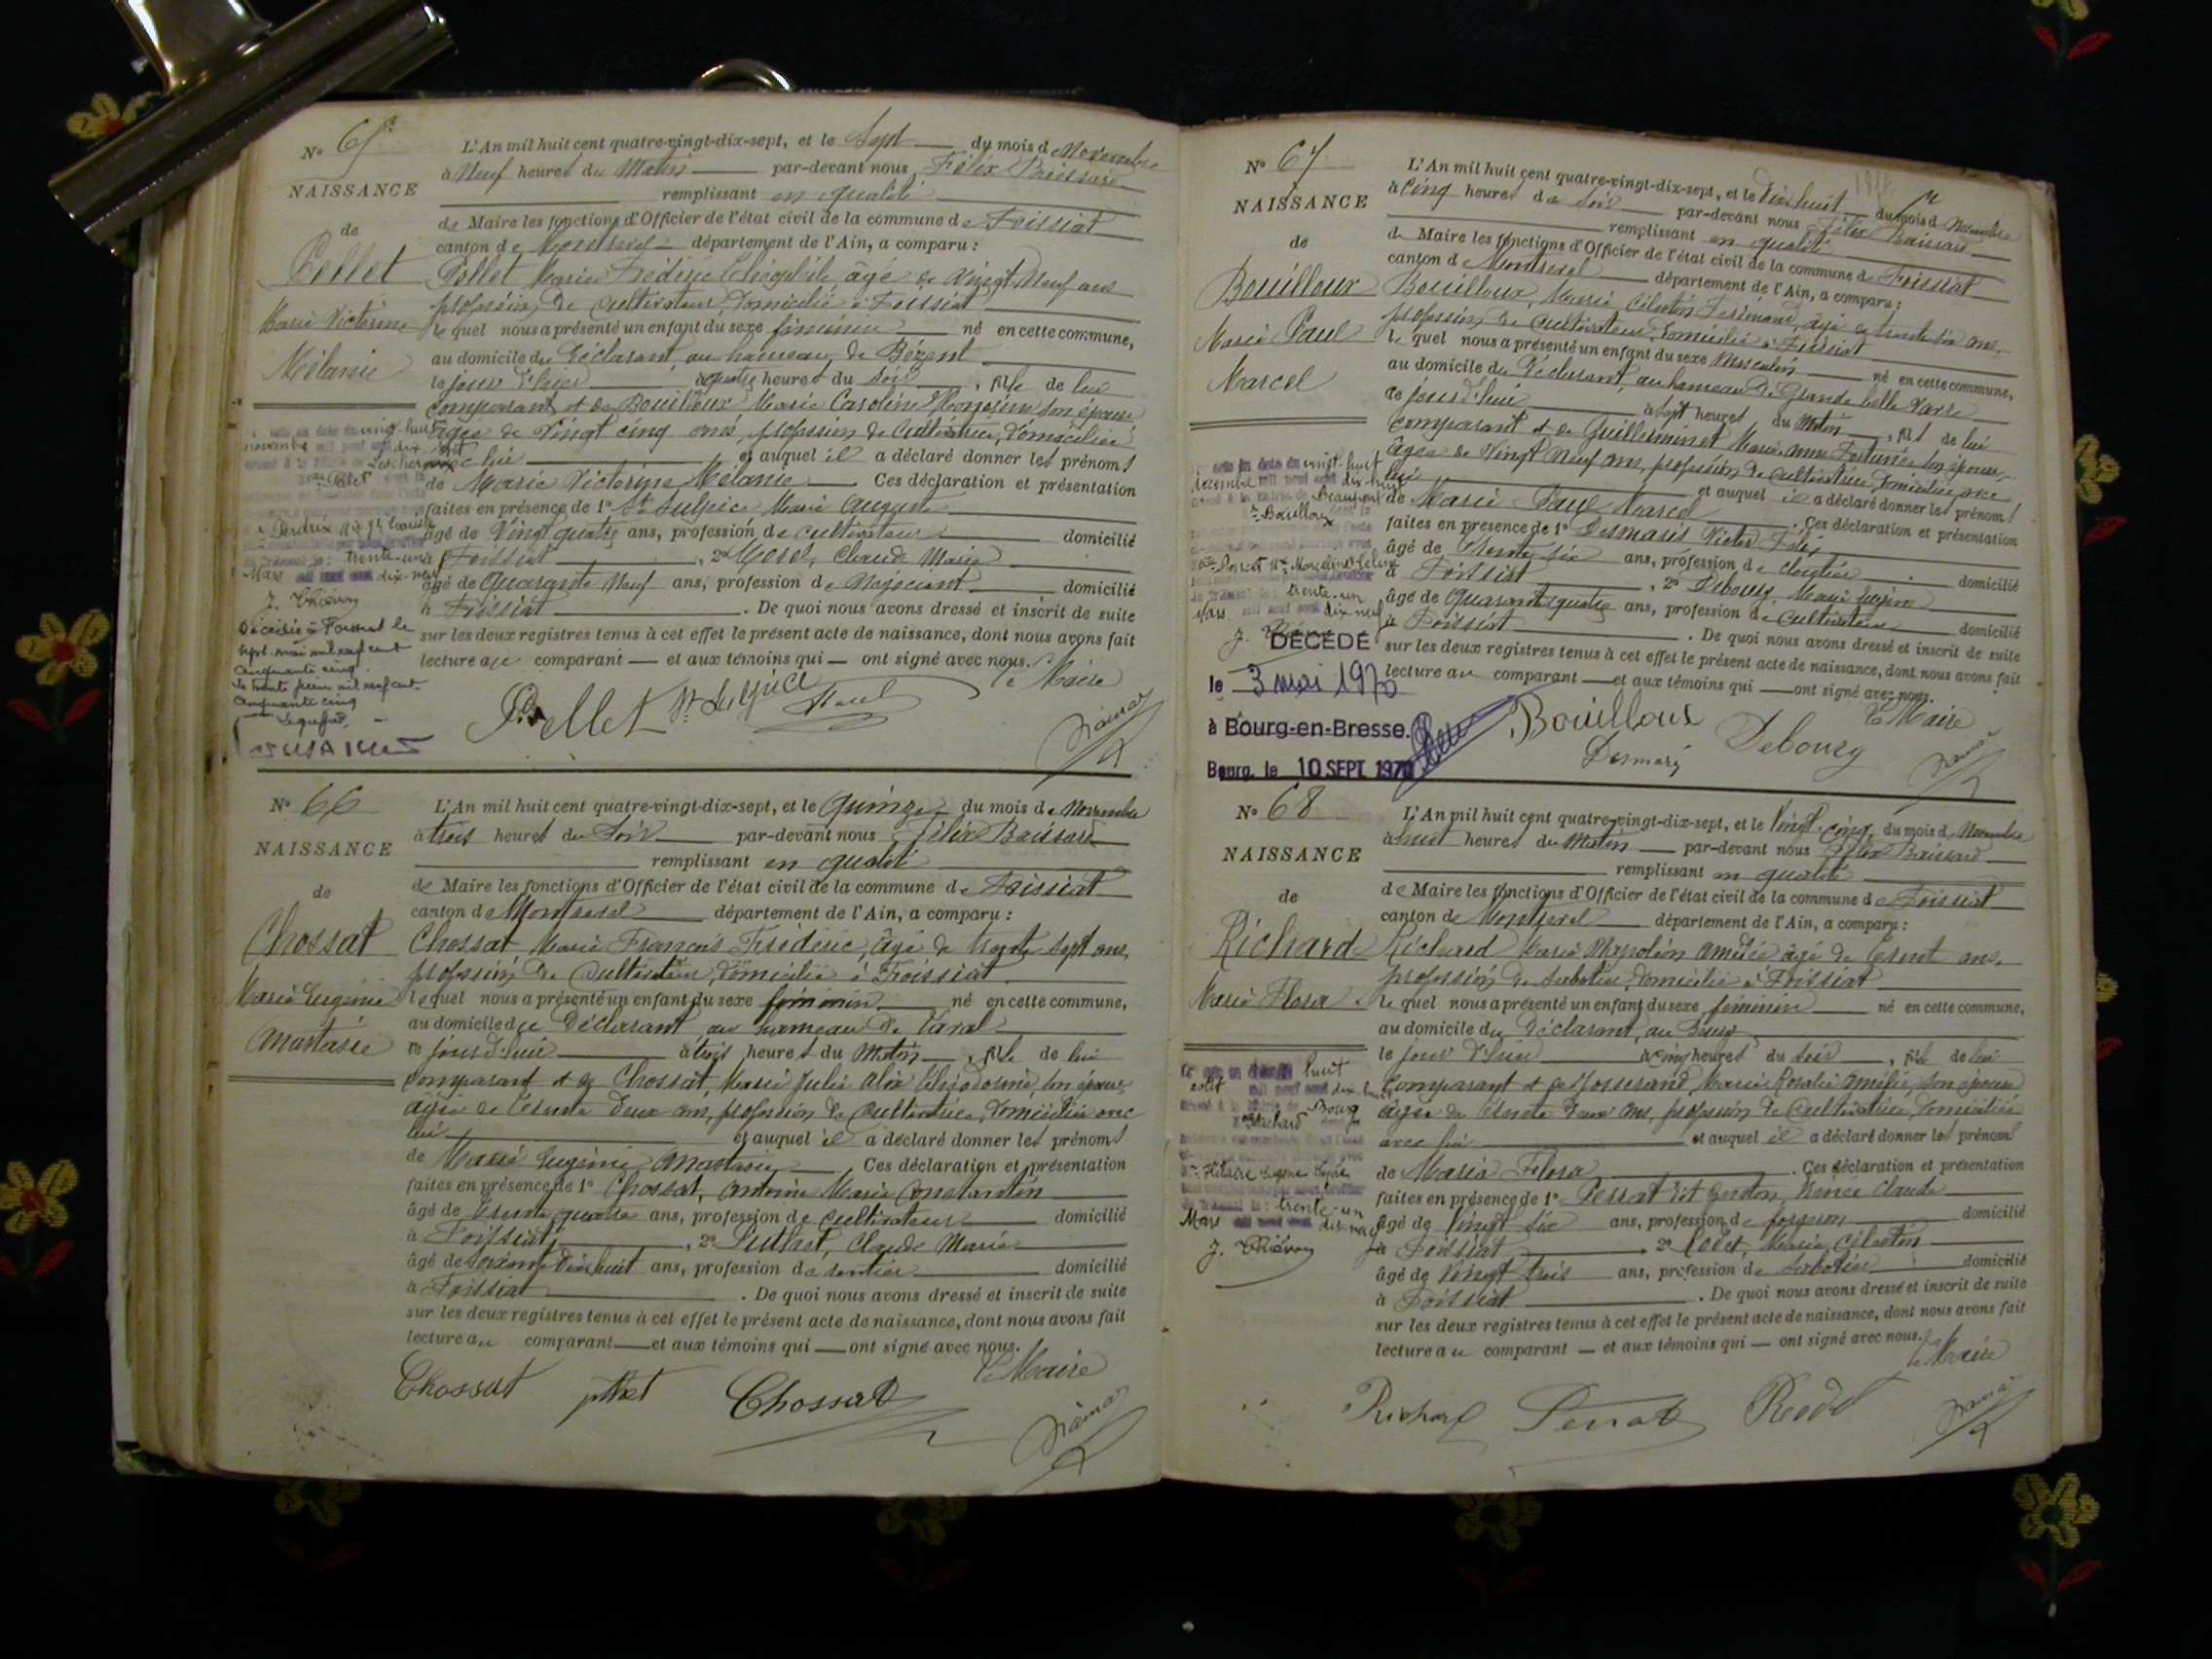 N° 65
NAISSANCE
de
Pellet
Marie Victorine
Mélanie
L'An mil huit cent quatre-vingt-dix-sept, et le Sept du mois de Novembre
à Neuf heures du Matin par-devant nous Félix
remplissant en qualité
de Maire les fonctions d'Officier de l'état civil de la commune de Foissiat
canton de Montrevel département de l'Ain, a comparu :
Pellet Marie Frédéric Théophile âgé de Vingt Neuf ans
profession de cultivateur, domicilié à Foissiat
lequel nous a présenté un enfant du sexe féminin né en cette commune,
au domicile du Déclarant, au hameau de
le jour d'hier à quatre heures du soir, fille de lui
comparant et de Bouilloux Marie Caroline son épouse
âgée de Vingt cinq ans, profession de Cultivatrice, domiciliée
avec lui et auquel il a déclaré donner les prénoms
de Marie Victorine Mélanie Ces déclaration et présentation
faites en présence de 1° St Sulpice Marie Auguste
âgé de Vingt quatre ans, profession de cultivateur domicilié
à Foissiat, 2° Morel, Claude Marie
âgé de Quarante Neuf ans, profession de Négociant domicilié
à Foissiat. De quoi nous avons dressé et inscrit de suite
sur les deux registres tenus à cet effet le présent acte de naissance, dont nous avons fait
lecture au comparant et aux témoins qui ont signé avec nous.
Le Maire
Pellet St Sulpice Morel
vingt-huit
novembre
Pellet
trente-un
Mars dix-neuf
Décédée à Foissiat le
sept mai mil neuf cent
cinquante cinq.
Le trente juin mil neuf cent
cinquante cinq
N° 66
NAISSANCE
de
Chossat
Marie Eugénie
Anastasie
L'An mil huit cent quatre-vingt-dix-sept, et le Quinze du mois de Novembre
à trois heures du Soir par-devant nous Félix
remplissant en qualité
de Maire les fonctions d'Officier de l'état civil de la commune de Foissiat
canton de Montrevel département de l'Ain, a comparu :
Chossat Marie François Frédéric, âgé de trente sept ans,
profession de Cultivateur, domicilié à Foissiat
lequel nous a présenté un enfant du sexe féminin né en cette commune,
au domicile du Déclarant au hameau de
ce jourd'hui à trois heures du Matin, fille de lui
comparant et de Chossat, Marie Julie Alix son épouse,
âgée de trente deux ans, profession de Cultivatrice, domiciliée avec
lui et auquel il a déclaré donner les prénoms
de Marie Eugénie Anastasie Ces déclaration et présentation
faites en présence de 1° Chossat, Antoine Marie Constantin
âgé de trente quatre ans, profession de Cultivateur domicilié
à Foissiat, 2° Claude Marie
âgé de soixante dix huit ans, profession de rentier domicilié
à Foissiat. De quoi nous avons dressé et inscrit de suite
sur les deux registres tenus à cet effet le présent acte de naissance, dont nous avons fait
lecture au comparant et aux témoins qui ont signé avec nous.
Le Maire
Chossat Chossat
N° 67
NAISSANCE
de
Bouilloux
Marie Paul
Marcel
L'An mil huit cent quatre-vingt-dix-sept, et le Dix huit du mois de Novembre
à Cinq heures du soir par-devant nous Félix
remplissant en qualité
de Maire les fonctions d'Officier de l'état civil de la commune de Foissiat
canton de Montrevel département de l'Ain, a comparu :
Bouilloux, Marie Célestin Ferdinand, âgé de trente six ans,
profession de Cultivateur, domicilié à Foissiat
lequel nous a présenté un enfant du sexe Masculin né en cette commune,
au domicile du Déclarant, au hameau de Grande
ce jourd'hui à sept heures du Matin, fils de lui
comparant et de Guilleminet Marie Fortunée son épouse,
âgée de Vingt neuf ans, profession de cultivatrice, domiciliée avec
lui et auquel il a déclaré donner les prénoms
de Marie Paul Marcel. Ces déclaration et présentation
faites en présence de 1° Desmaris Victor Félix
âgé de trente six ans, profession de domicilié
à Foissiat, 2° Debourg Marie
âgé de Quarante quatre ans, profession de Cultivateur domicilié
à Foissiat. De quoi nous avons dressé et inscrit de suite
sur les deux registres tenus à cet effet le présent acte de naissance, dont nous avons fait
lecture au comparant et aux témoins qui ont signé avec nous.
Le Maire
Bouilloux Debourg
Desmaris
vingt-huit
décembre
Beaupont
Bouilloux
trente-un
Mars dix-neuf
DÉCÉDÉ
le 3 mai 1970
à Bourg-en-Bresse.
Bourg, le 10 SEPT. 1970
N° 68
NAISSANCE
de
Richard
Maria Flora
L'An mil huit cent quatre-vingt-dix-sept, et le Vingt cinq du mois de Novembre
à huit heures du Matin par-devant nous Félix
remplissant en qualité
de Maire les fonctions d'Officier de l'état civil de la commune de Foissiat
canton de Montrevel département de l'Ain, a comparu :
Richard Marie Napoléon Amédée âgé de trente ans,
profession de sabotier, domicilié à Foissiat
lequel nous a présenté un enfant du sexe féminin né en cette commune,
au domicile du Déclarant, au Bourg
le jour d'hier à cinq heures du soir, fille de lui
comparant et de Josserand, Marie Rosalie Amélie, son épouse
âgée de trente deux ans, profession de Cultivatrice domiciliée
avec lui et auquel il a déclaré donner les prénoms
de Maria Flora. Ces déclaration et présentation
faites en présence de 1° Claude
âgé de Vingt six ans, profession de forgeron domicilié
à Foissiat, 2° Marie Célestin
âgé de Vingt trois ans, profession de Sabotier domicilié
à Foissiat. De quoi nous avons dressé et inscrit de suite
sur les deux registres tenus à cet effet le présent acte de naissance, dont nous avons fait
lecture au comparant et aux témoins qui ont signé avec nous.
Le Maire
Richard
huit
août
Bourg
Richard
trente-un
Mars dix-neuf